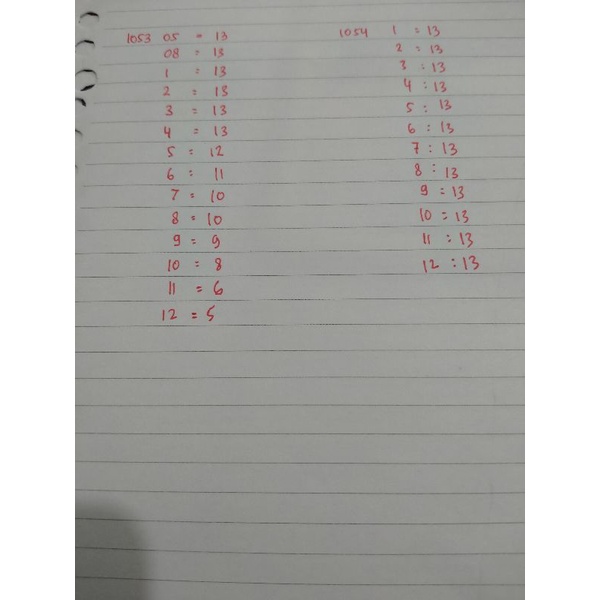 1053 05 = 13
08 = 13
1 = 13
2 = 13
3 = 13
4 = 13
5 = 12
6 = 11
7 = 10
8 = 10
9 = 9
10 = 8
11 = 6
12 = 5
1054 1 = 13
2 = 13
3 : 13
4 : 13
5 : 13
6 : 13
7 : 13
8 : 13
9 = 13
10 = 13
11 : 13
12 : 13